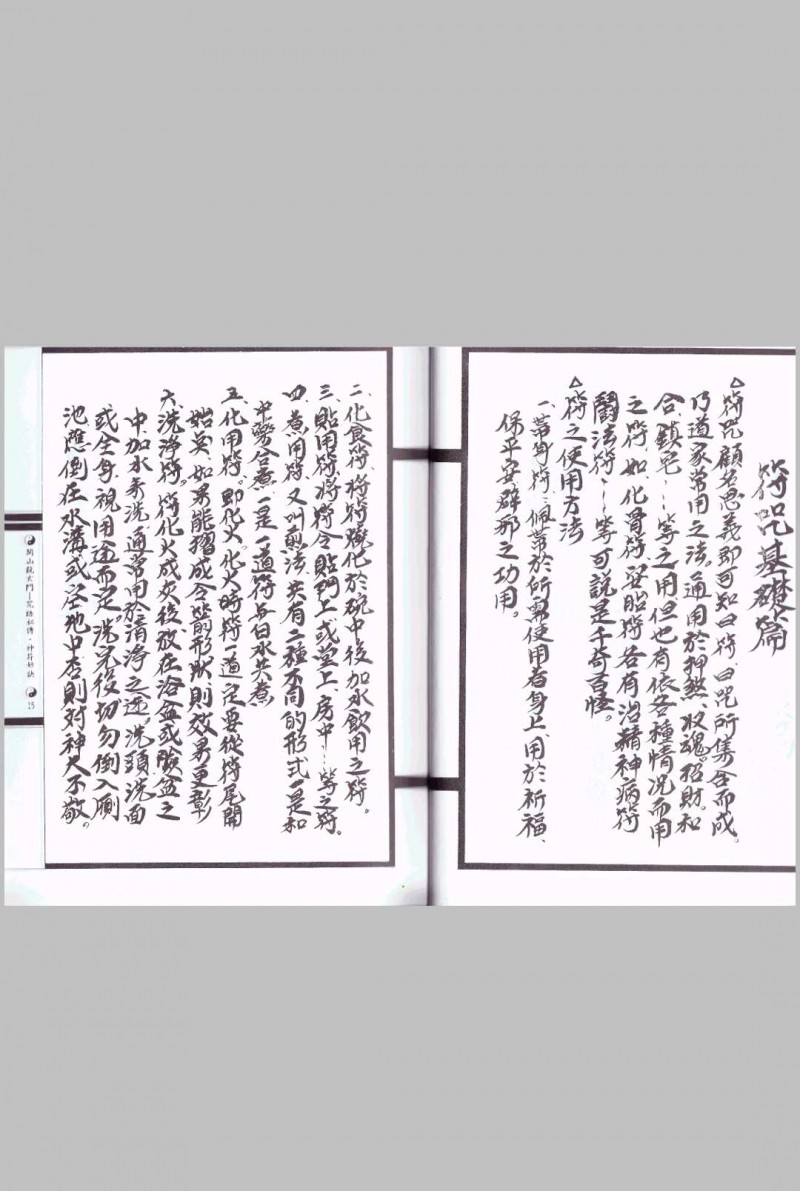 符咒基礎篇
△符咒顧名思義即可知曰符、曰咒所集合而成。
乃道家常用之法。通用於押煞、收魂。招財。和
合、鎮宅……等之用。但也有依各種情況而用
之符、如、化骨符、安胎符各有治精神病符
鬪法符……等可說是千奇百怪。
△符之使用方法
一、帶身符、佩帶於所需使用者身上、用於祈福、
保平安辟邪之功用。
二、化食符、將符燒化於碗中後加水飲用之符。
三、貼用符、將符令貼門上或堂上、房中……等之符。
四、煮用符、又叫煎法、共有二種不同的形式一是和
中藥合煮、一是一道符与白水共煮
五、化用符。即化火。化火時符一道定要從符尾開
始燒、如果能摺成令箭形狀則效果更彰
六、洗淨符。符化火成灰後放在浴盆或臉盆之
中加水來洗、通常用於清淨之途。洗頭、洗面
或全身視用途而定。洗完後切勿倒入廁
池應倒在水溝或空地中否則對神大不敬。
開山龍玄門—咒語秘傳·神符妙訣
25